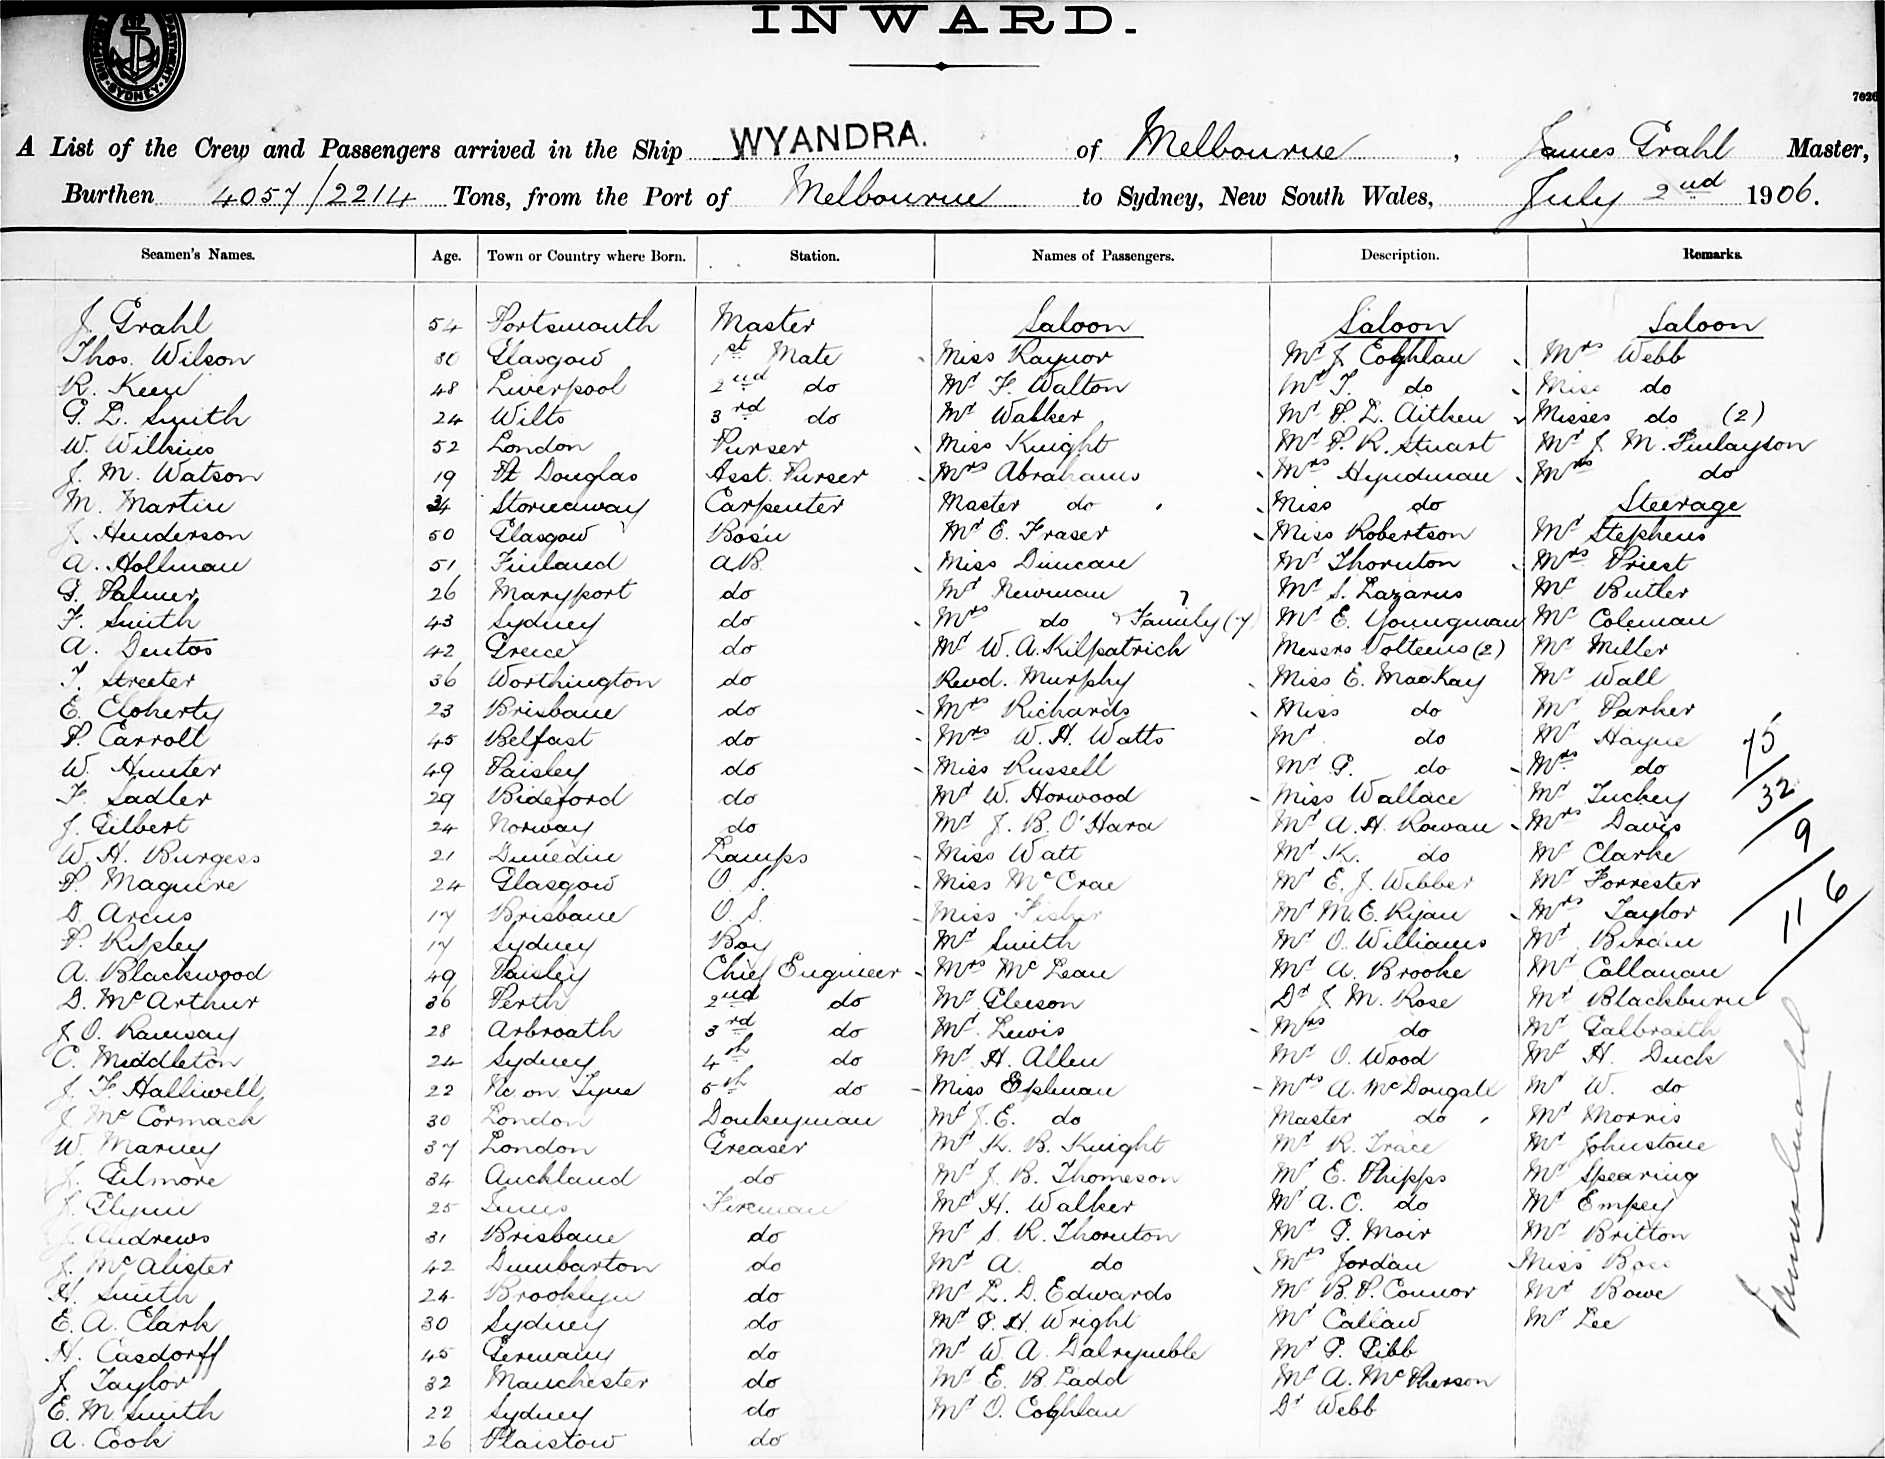 INWARD.
SYDNEY
7020
A List of the Crew and Passengers arrived in the Ship WYANDRA. of Melbourne, James Grahl Master,
Burthen 4057/2214 Tons, from the Port of Melbourne to Sydney, New South Wales, July 2nd 1906.
Seamen's Names. Age. Town or Country where Born. Station. Names of Passengers. Description. Remarks.
J. Grahl 54 Portsmouth Master Saloon Saloon Saloon
Thos. Wilson 30 Glasgow 1st Mate Miss Raynor Mr J. Coghlan Mrs Webb
R. Keen 48 Liverpool 2nd do Mr F. Walton Mr T. do Miss do
G. L. Smith 24 Wilts 3rd do Mr Walker Mr P. L. Aitken Misses do (2)
W. Wilkins 52 London Purser Miss Knight Mr P. R. Stuart Mr J. M. Finlayson
J. M. Watson 19 Pt Douglas Asst. Purser Mrs Abrahams Mrs Hyndman Mrs do
M. Martin 34 Stornaway Carpenter Master do Miss do Steerage
J. Henderson 50 Glasgow Bosun Mr E. Fraser Miss Robertson Mr Stephens
A. Hollman 51 Finland A.B. Miss Duncan Mr Thornton Mrs Priest
G. Palmer 26 Maryport do Mr Newman Mr S. Lazarus Mr Butler
F. Smith 43 Sydney do Mrs do & Family (7) Mr E. Youngman Mr Coleman
A. Dentos 42 Greece do Mr W. A. Kilpatrick Messrs Volteens (2) Mr Miller
T. Streeter 36 Worthington do Revd. Murphy Miss E. MacKay Mr Wall
E. Cloherty 23 Brisbane do Mrs Richards Miss do Mr Parker
P. Carroll 45 Belfast do Mrs W. H. Watts Mr do Mr Hayne
W. Hunter 49 Paisley do Miss Russell Mr G. do Mrs do
F. Sadler 29 Bideford do Mr W. Horwood Miss Wallace Mr Tuckey
J. Gilbert 24 Norway do Mr J. B. O'Hara Mr A. H. Rowan Mrs Davis
W. H. Burgess 21 Dunedin Lamps Miss Watt Mr K. do Mr Clarke
P. Maguire 24 Glasgow O.S. Miss McCrae Mr E. J. Webber Mr Forrester
D. Arcus 17 Brisbane O.S. Miss Fisher Mr M. E. Ryan Mrs Taylor
P. Ripley 17 Sydney Boy Mr Smith Mr O. Williams Mr
A. Blackwood 49 Paisley Chief Engineer Mrs McLean Mr A. Brooke Mr Callanan
D. McArthur 36 Perth 2nd do Mr Gleeson Dr J. M. Rose Mr Blackburn
J. O. Ramsay 28 Arbroath 3rd do Mr Lewis Mrs do Mr Galbraith
C. Middleton 24 Sydney 4th do Mr H. Allen Mr O. Wood Mr H. Duck
J. F. Halliwell 22 Nc. on Tyne 5th do Miss Eplman Mrs A. McDougall Mr W. do
J. McCormack 30 London Donkeyman Mr J. E. do Master do Mr Morris
W. Marney 37 London Greaser Mr K. B. Knight Mr R. Trace Mr Johnstone
J. Gilmore 34 Auckland do Mr J. B. Thomeson Mr E. Phipps Mr Spearing
J. Glynn 25 Fireman Mr H. Walker Mr A. C. do Mr Empey
J. Andrews 31 Brisbane do Mr S. R. Thornton Mr G. Moir Mr Britton
J. McAlister 42 Dumbarton do Mr A. do Mrs Jordan Miss
H. Smith 24 Brooklyn do Mr L. D. Edwards Mr B. P. Connor Mr Bowe
E. A. Clark 30 Sydney do Mr G. H. Wright Mr Callaw Mr Lee
H. Casdorff 45 Germany do Mr W. A. Dalrymble Mr G. Gibb
J. Taylor 32 Manchester do Mr E. B. Ladd Mr A. McPherson
E. M. Smith 22 Sydney do Mr O. Coghlan Dr Webb
A. Cook 26 Plaistow do
75/32/9/116